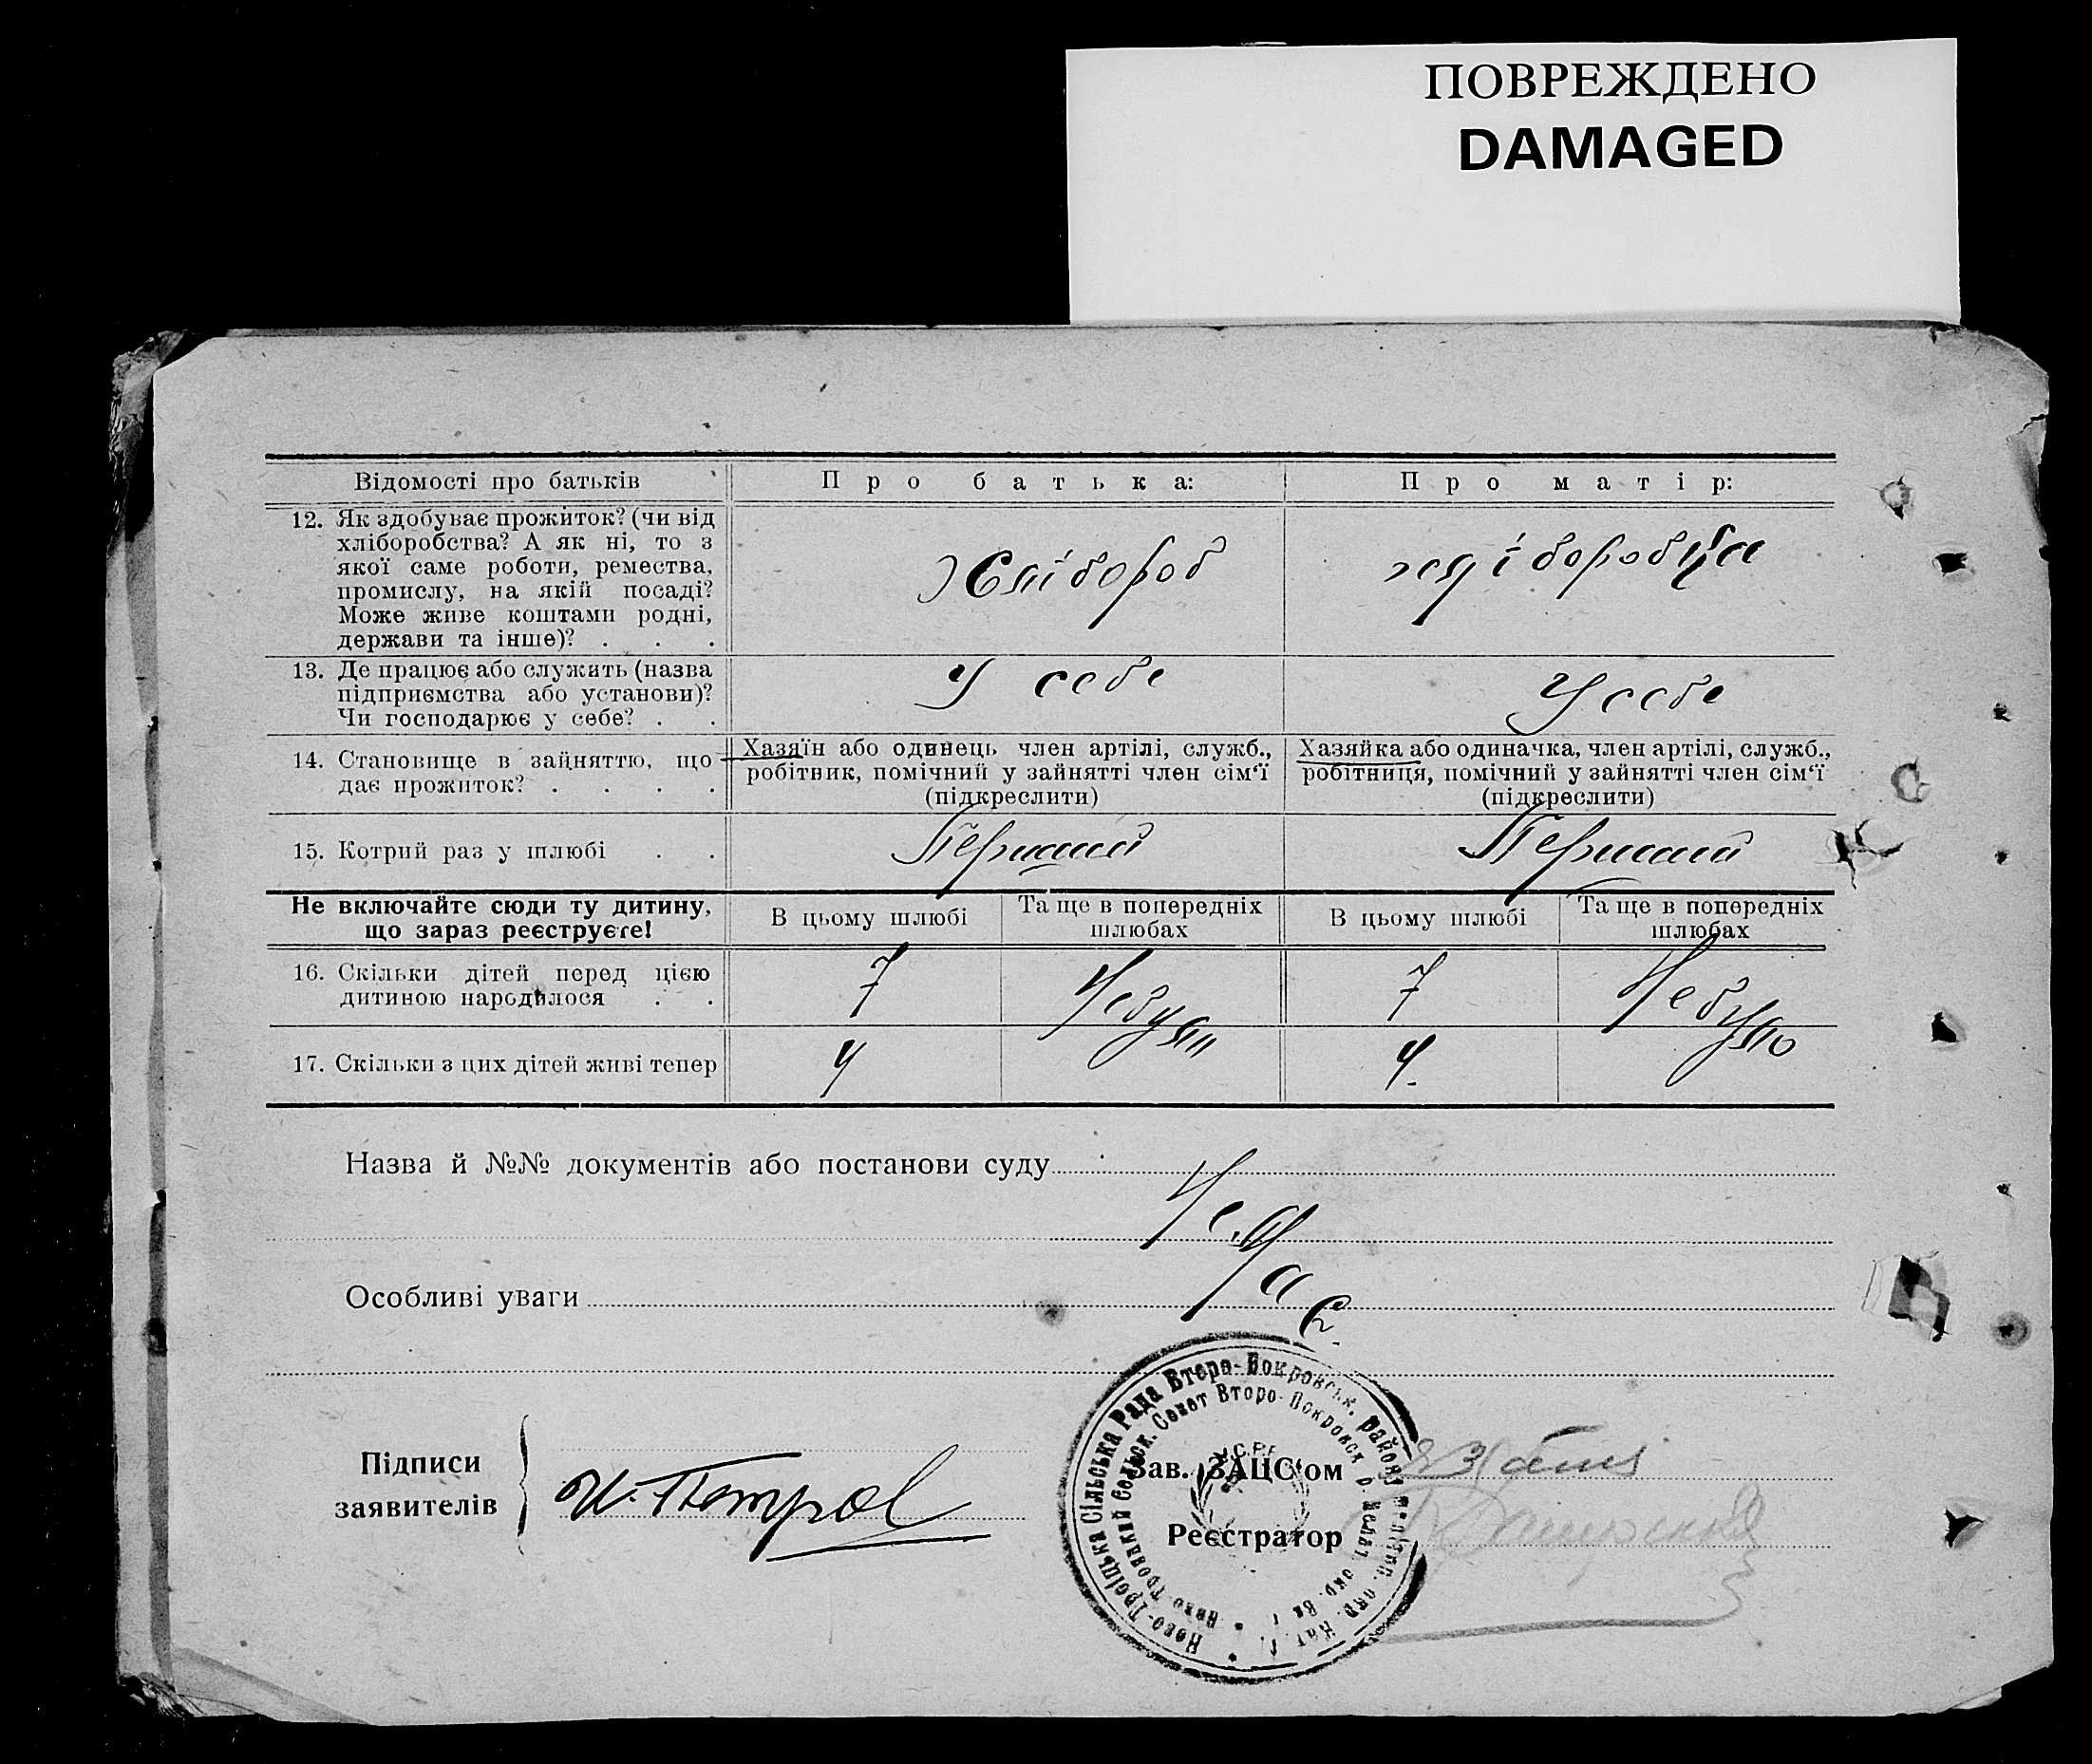 ПОВРЕЖДЕНО
DAMAGED
Відомості про батьків
Про батька:
Про матір:
12. Як здобуває прожиток? (чи від
хліборобства? А як ні, то з
якої саме роботи, ремества,
промислу, на якій посаді?
Може живе коштами родні,
держави та інше)? . . .
Хлібороб
хліборобка
13. Де працює або служить (назва
підприємства або установи)?
Чи господарює у себе? . .
У себе
У себе
14. Становище в зайняттю, що
дає прожиток? . . . .
Хазяїн або одинець член артілі, служб.,
робітник, помічний у зайнятті член сім'ї
(підкреслити)
Хазяйка або одиначка, член артілі, служб.,
робітниця, помічний у зайнятті член сім'ї
(підкреслити)
15. Котрий раз у шлюбі . .
Перший
Перший
Не включайте сюди ту дитину,
що зараз реєструєте!
В цьому шлюбі
Та ще в попередніх
шлюбах
В цьому шлюбі
Та ще в попередніх
шлюбах
16. Скільки дітей перед цією
дитиною народилося . .
7
7
Не було
17. Скільки з цих дітей живі тепер
4
4.
Назва й №№ документів або постанови суду
Особливі уваги
Немає
Підписи
заявителів
И. Петров
Зав. ЗАЦС'ом
Реєстратор
Ново-Троїцька Сільська Рада Второ-Покровськ. району
Ново-Троицкий Сельск. Совет Второ-Покровск. р.